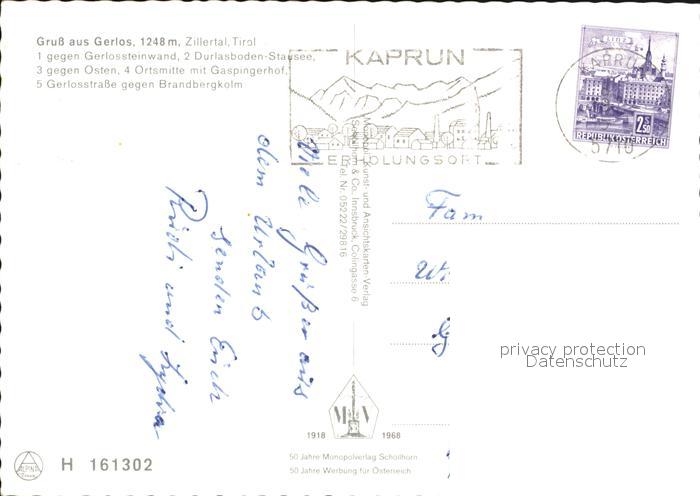 Gruß aus Gerlos, 1248 m, Zillertal, Tirol
1 gegen Gerlossteinwand, 2 Durlasboden-Stausee,
3 gegen Osten, 4 Ortsmitte mit Gaspingerhof,
5 Gerlosstraße gegen Brandbergkolm
KAPRUN
ERHOLUNGSORT
LINZ
2.50
REPUBLIK ÖSTERREICH
KAPRUN
5710
Monopol Kunst- und Ansichtskarten-Verlag
Schöllhorn & Co. Innsbruck, Colingasse 6
Tel. Nr. 05222/29816
Viele Grüße aus
dem Urlaub
senden Euch
Rudi und Lydia
Fam
W.
G
privacy protection
Datenschutz
M V
1918 1968
50 Jahre Monopolverlag Schöllhorn
50 Jahre Werbung für Österreich
ALPINA
H 161302